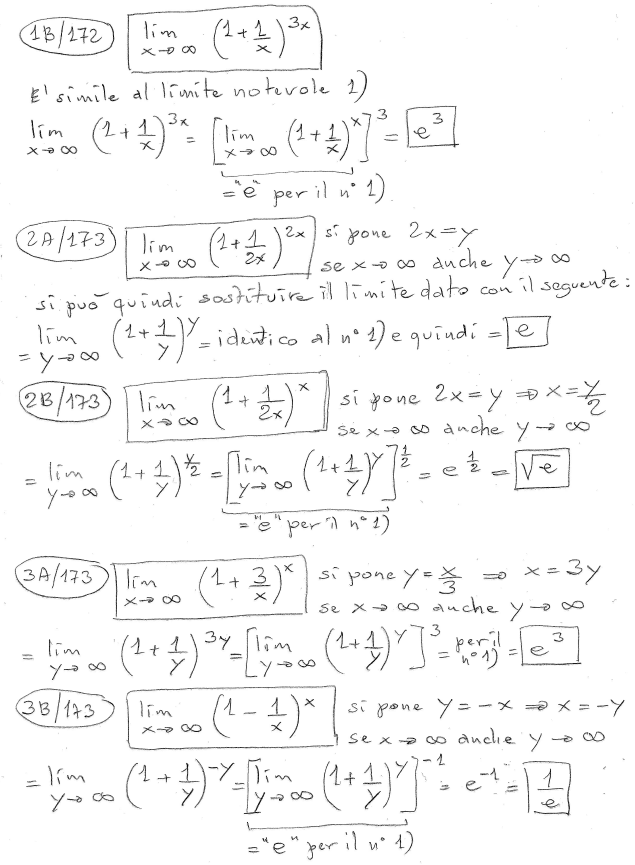 1B/172 lim x→∞ (1+1/x)^3x
E' simile al limite notevole 1)
lim x→∞ (1+1/x)^3x = [lim x→∞ (1+1/x)^x]^3 = e^3
="e" per il n° 1)
2A/173 lim x→∞ (1+1/2x)^2x si pone 2x=y
se x→∞ anche y→∞
si può quindi sostituire il limite dato con il seguente:
= lim y→∞ (1+1/y)^y = identico al n° 1) e quindi = e
2B/173 lim x→∞ (1+1/2x)^x si pone 2x=y ⇒ x=y/2
se x→∞ anche y→∞
= lim y→∞ (1+1/y)^y/2 = [lim y→∞ (1+1/y)^y]^1/2 = e^1/2 = √e
="e" per il n° 1)
3A/173 lim x→∞ (1+3/x)^x si pone y=x/3 ⇒ x=3y
se x→∞ anche y→∞
= lim y→∞ (1+1/y)^3y = [lim y→∞ (1+1/y)^y]^3 = per il n° 1) = e^3
3B/173 lim x→∞ (1-1/x)^x si pone y=-x ⇒ x=-y
se x→∞ anche y→∞
= lim y→∞ (1+1/y)^-y = [lim y→∞ (1+1/y)^y]^-1 = e^-1 = 1/e
="e" per il n° 1)